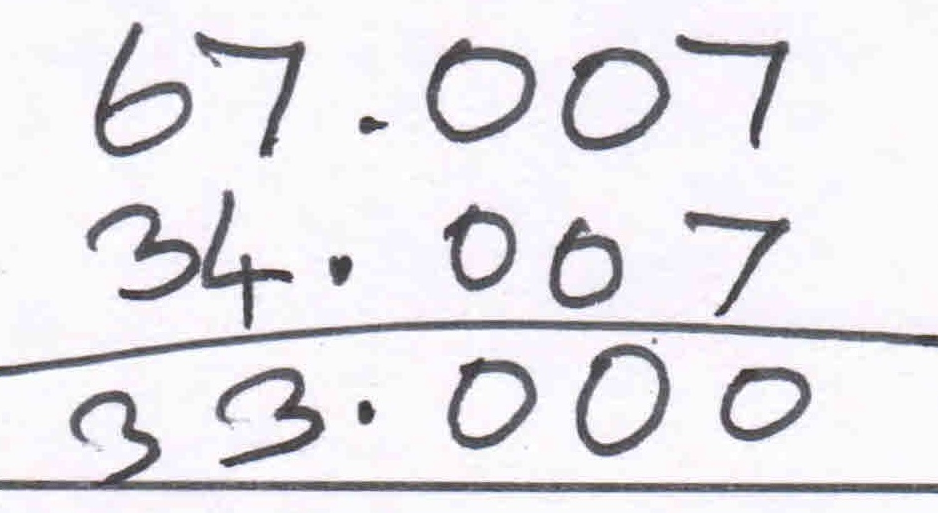 67.007
34.007
33.000